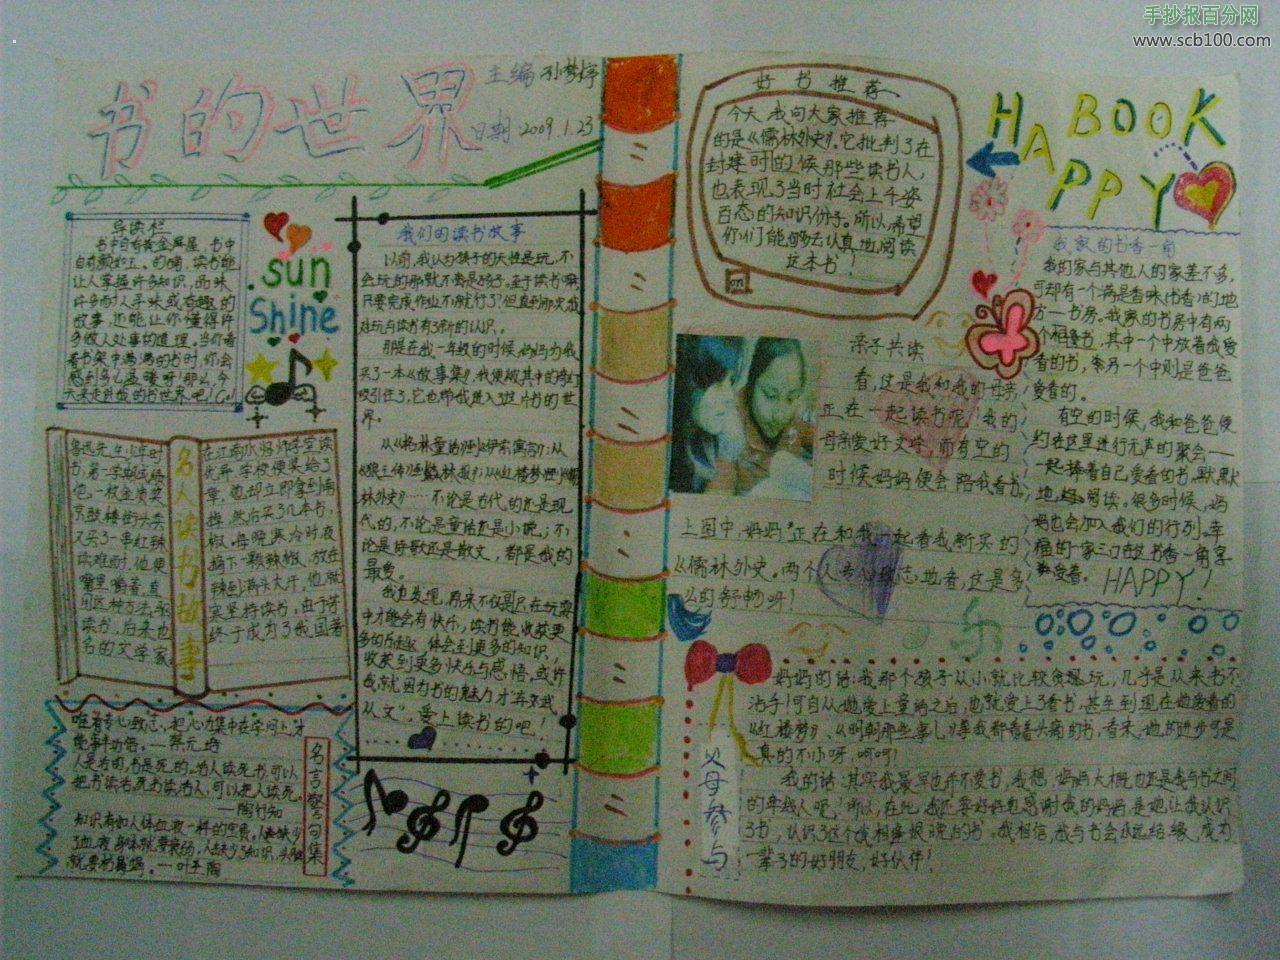 手抄报百分网
www.scb100.com
书的世界
主编 孙梦婷
日期 2009.1.23
导读栏
书中自有黄金屋,书中
自有颜如玉。的确,读书能
让人掌握许多知识,品味
许多耐人寻味或有趣的
故事,还能让你懂得许
多做人处事的道理。当你看
着书架中满满的书时,你会
感到多么温暖呀!那么,今
sun
Shine
名人读书故事
鲁迅先生少年时
在江南水师学堂读
书,第一学期成绩
优异,学校便奖给了
他一枚金质奖
章。他却立即拿到南
京鼓楼街头卖
掉,然后买了几本书,
又买了一串红辣
椒。每晚寒冷时夜
读难耐时,他便
摘下一颗辣椒,放在
嘴里嚼着,直
辣到满头大汗。他就
用这种方法
坚持读书,由于苦
读书,后来也
终于成为了我国著
名的文学家。
名言警句集
唯有专心致志,把心力集中在学问上,才
能事半功倍。—蔡元培
人是活的,书是死的。活人读死书,可以
把书读活。死书读活人,可以把人读死。
—陶行知
—叶圣陶
我们的读书故事
以前,我认为孩子的天性是玩,不
会玩的那就不算是孩子。至于读书嘛,
只要完成作业不就行了?但直到那次我
对玩与读书有了新的认识。
那是在我一年级的时候,妈妈为我
买了一本《故事集》,我便被其中的奇幻
吸引住了,它也带我进入了这片书的世
界。
从《格林童话》到《伊索寓言》;从
林外史》……不论是古代的还是现
代的,不论是童话还是小说,不
论是诗歌还是散文,都是我的
最爱。
我也发现,原来不仅是只在玩耍
中才能会有快乐,读书能收获更
多的乐趣,体会到更多的知识,
收获到更多快乐与感悟,或许
我就因为书的魅力才“弃武
从文”,爱上读书的吧!
好书推荐
今天,我向大家推荐
的是《儒林外史》。它批判了在
封建时的候那些读书人,
也表现了当时社会上千姿
百态的知识份子。所以,希望
你们能够去认真地阅读
这本书!
on
HA BOOK
PPY
亲子共读
看,这是我和我的母亲
正在一起读书呢!我的
母亲爱好文学,而有空的
时候妈妈便会陪我看书。
上图中,妈妈正在和我一起看我新买的
《儒林外史》。两个人专心致志地看,这是多
么的舒畅呀!
乐
我家的书香一角
我的家与其他人的家差不多,
可却有一个满是香味(书香)的地
方—书房。我家的书房中有两
个相连书,其中一个中放着我爱
看的书,令另一个中则是爸爸
爱看的。
有空的时候,我和爸爸便
约在这里进行无声的聚会—
一起捧着自己爱看的书,默默
地阅读。很多时候,妈
妈也会加入我们的行列。幸
福的一家三口在这书香一角享
受着。
HAPPY!
父母参与
妈妈的话:我那个孩子从小就比较贪玩,几乎是从来书不
沾手!可自从她爱上童话之后,也就爱上了看书,甚至到现在她爱看的
《红楼梦》、《明朝那些事儿》等我都看着头痛的书,看来,她的进步可是
真的不小呀,呵呵!
我的话:其实我最早也并不爱书,我想,妈妈大概也还是我与书之间
的牵线人吧!所以,在此,我还要好好地感谢我的妈妈,是她让我认识
了书,认识了这个我相逢恨晚的书。我相信,我与书会永远结缘,成为
一辈子的好朋友,好伙伴!